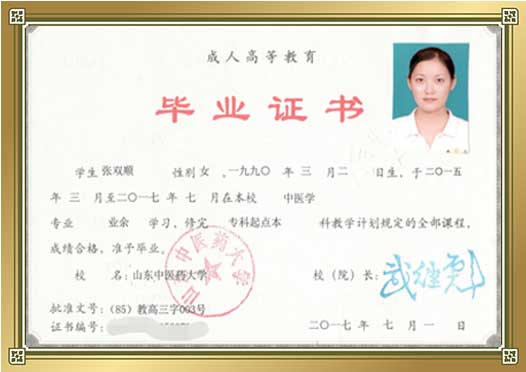 成人高等教育
毕业证书
学生 张双顺 性别 女 ,一九九〇 年 三 月 二 日生,于二〇一五
年 三 月至二〇一七年 七 月在本校 中医学
专业 业余 学习,修完 专科起点本 科教学计划规定的全部课程,
成绩合格,准予毕业。
校 名:山东中医药大学
校(院)长:
批准文号:(85)教高三字003号
证书编号:
二〇一七年 七 月 一 日
山东中医药大学